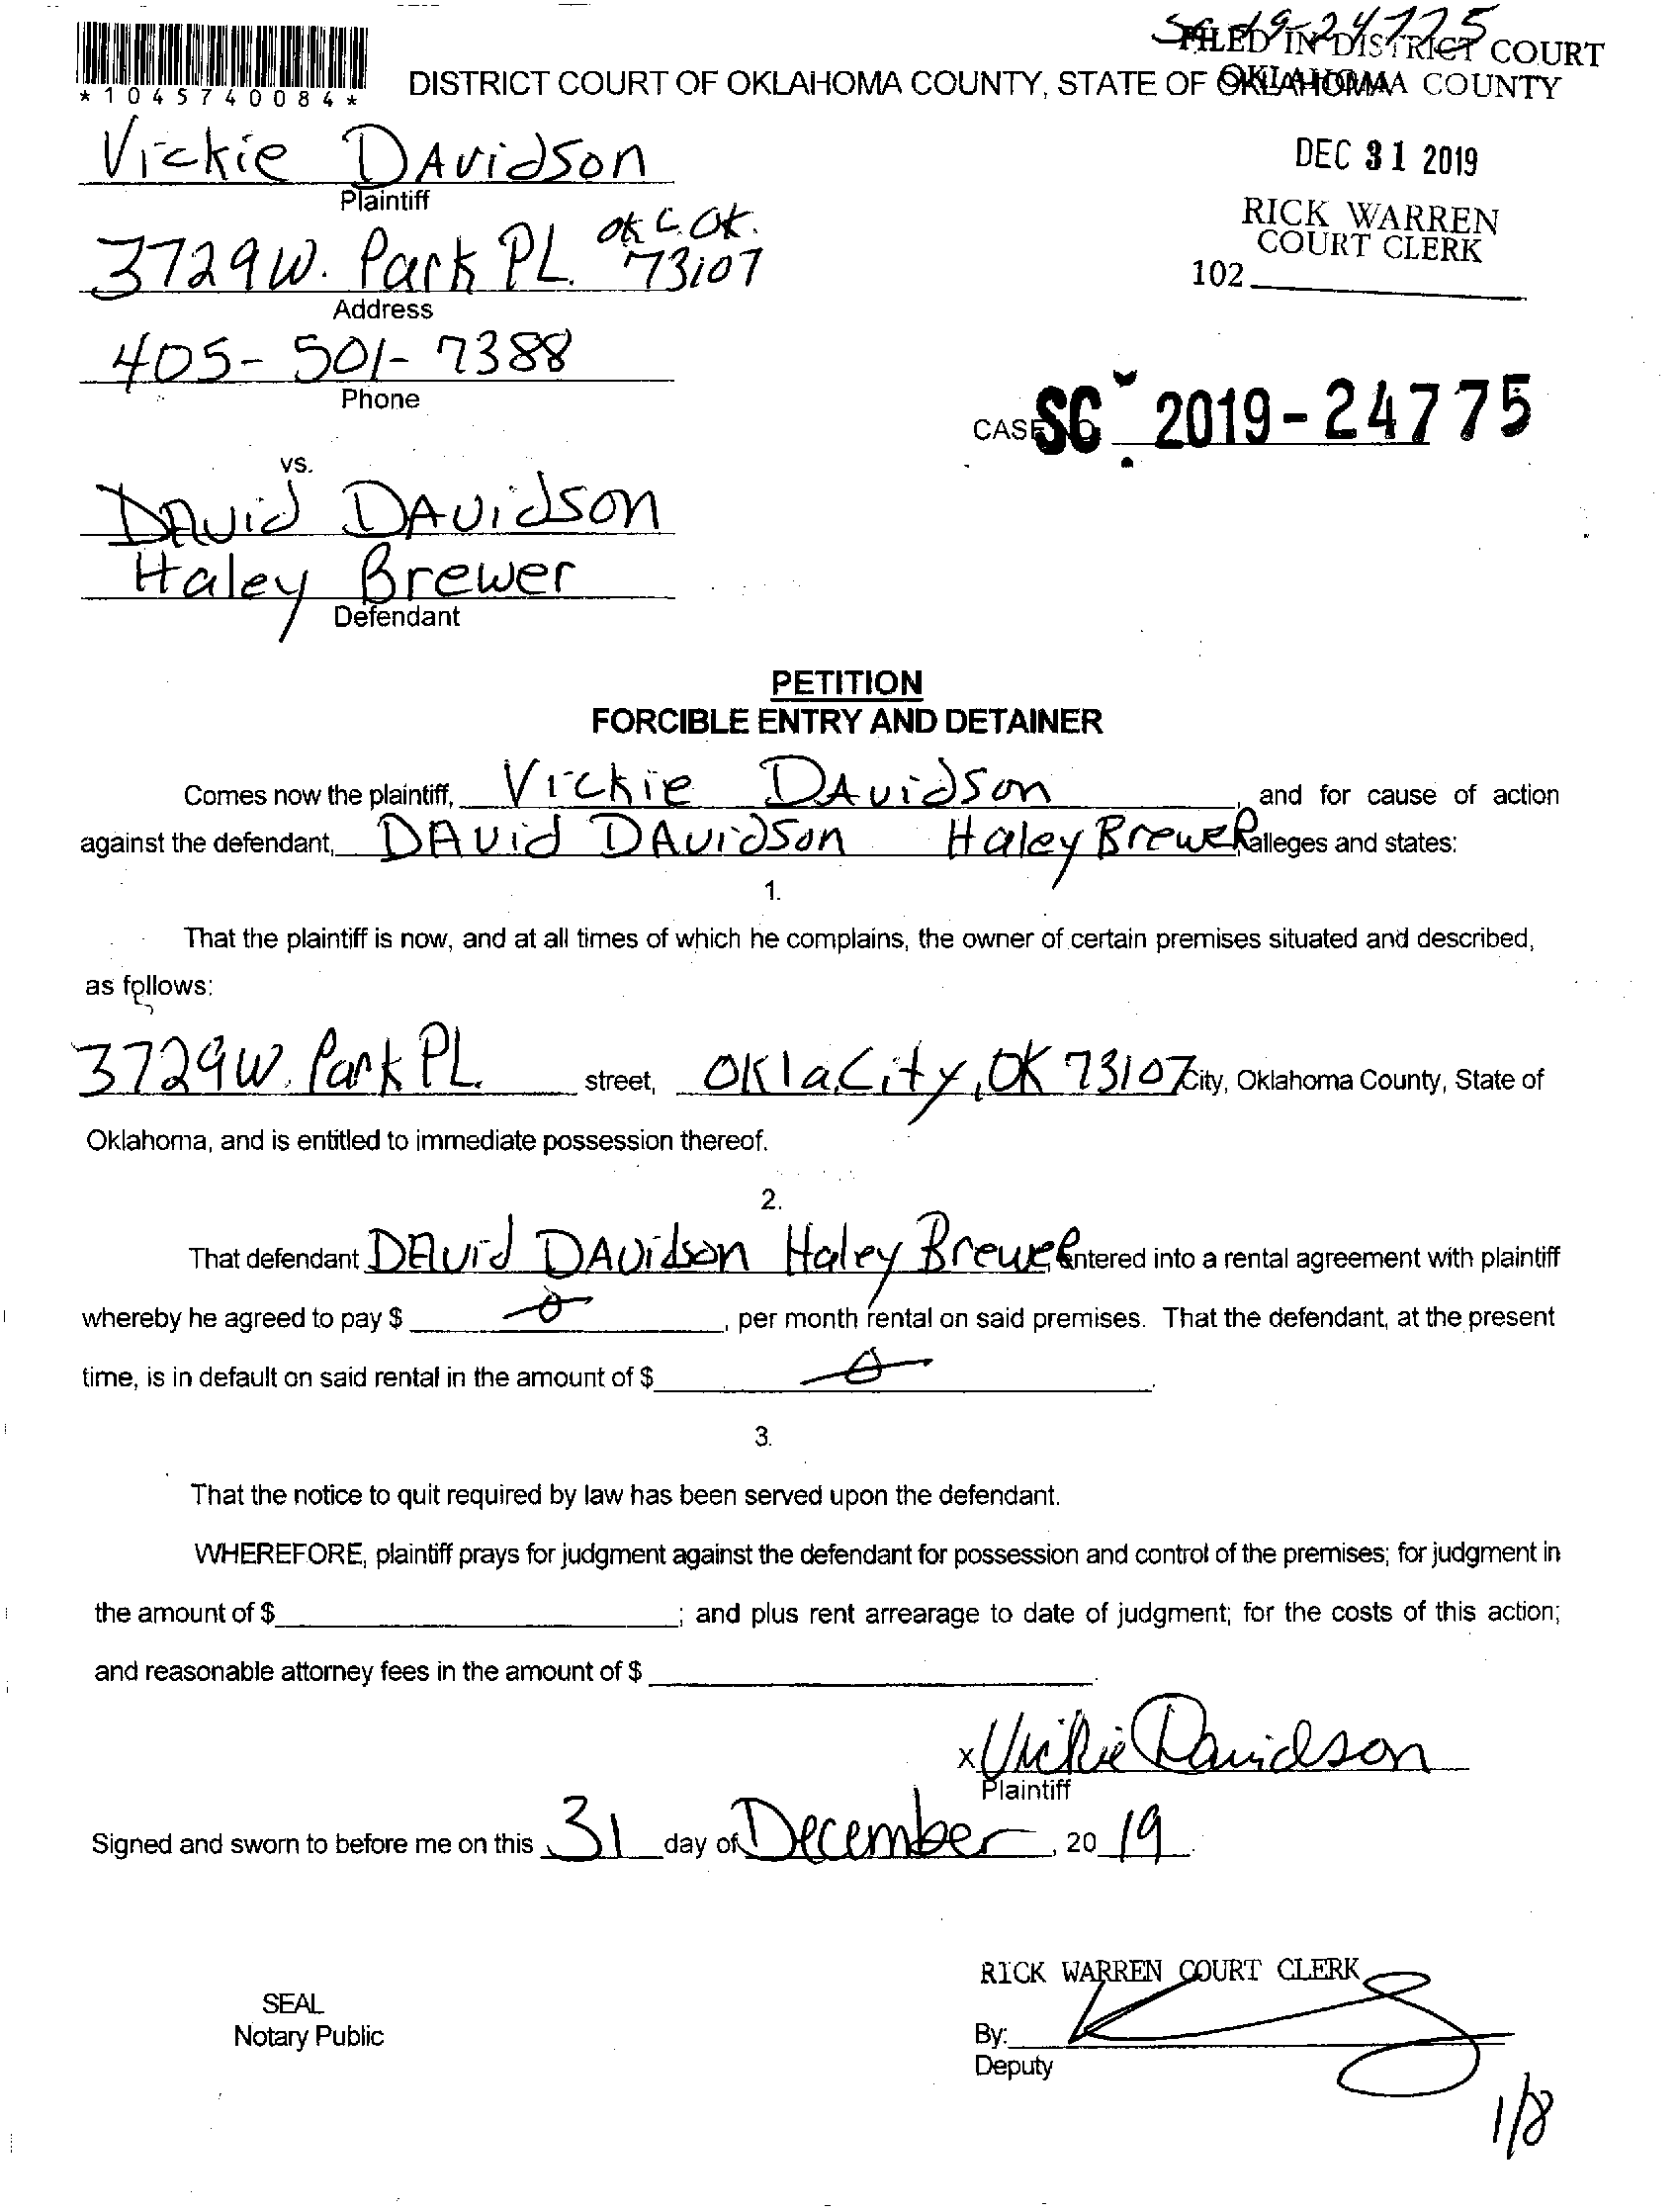 SC-19-24775
FILED IN DISTRICT COURT
*1045740084*
DISTRICT COURT OF OKLAHOMA COUNTY, STATE OF OKLAHOMA
OKLAHOMA COUNTY
Vickie DAvidson
DEC 31 2019
Plaintiff
RICK WARREN
COURT CLERK
3729 W. Park PL. OKC. OK. 73107
102
Address
405-501-7388
Phone
CASE NO. SC 2019-24775
vs.
DAvid DAvidson
Haley Brewer
Defendant
PETITION
FORCIBLE ENTRY AND DETAINER
Comes now the plaintiff, Vickie DAvidson, and for cause of action
against the defendant, DAvid DAvidson Haley BreweR alleges and states:
1.
That the plaintiff is now, and at all times of which he complains, the owner of certain premises situated and described,
as follows:
3729 W. Park PL. street, Okla City, OK 73107 City, Oklahoma County, State of
Oklahoma, and is entitled to immediate possession thereof.
2.
That defendant DAvid DAvidson Haley BreweR entered into a rental agreement with plaintiff
whereby he agreed to pay $ 0, per month rental on said premises. That the defendant, at the present
time, is in default on said rental in the amount of $ 0.
3.
That the notice to quit required by law has been served upon the defendant.
WHEREFORE, plaintiff prays for judgment against the defendant for possession and control of the premises; for judgment in
the amount of $ ; and plus rent arrearage to date of judgment; for the costs of this action;
and reasonable attorney fees in the amount of $ .
x Vickie Davidson
Plaintiff
Signed and sworn to before me on this 31 day of December, 20 19.
RICK WARREN COURT CLERK
SEAL
Notary Public
By:
Deputy
1/8